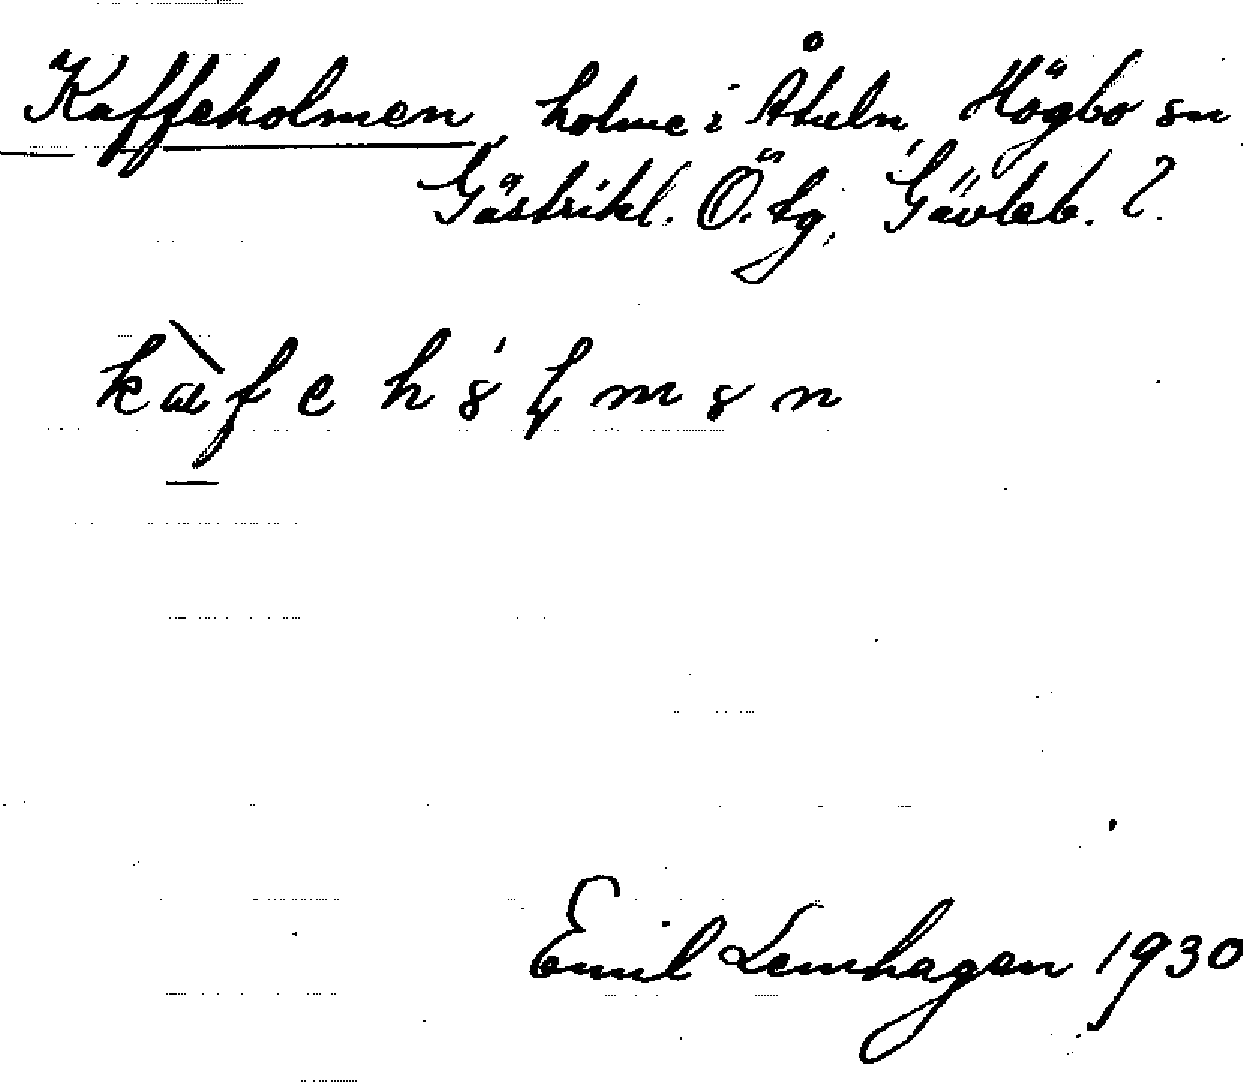 Kaffeholmen, holme i Åkeln, Högbo sn
Gästrikl. Ö. tg, Gävleb. l.
Emil Lemhagen 1930